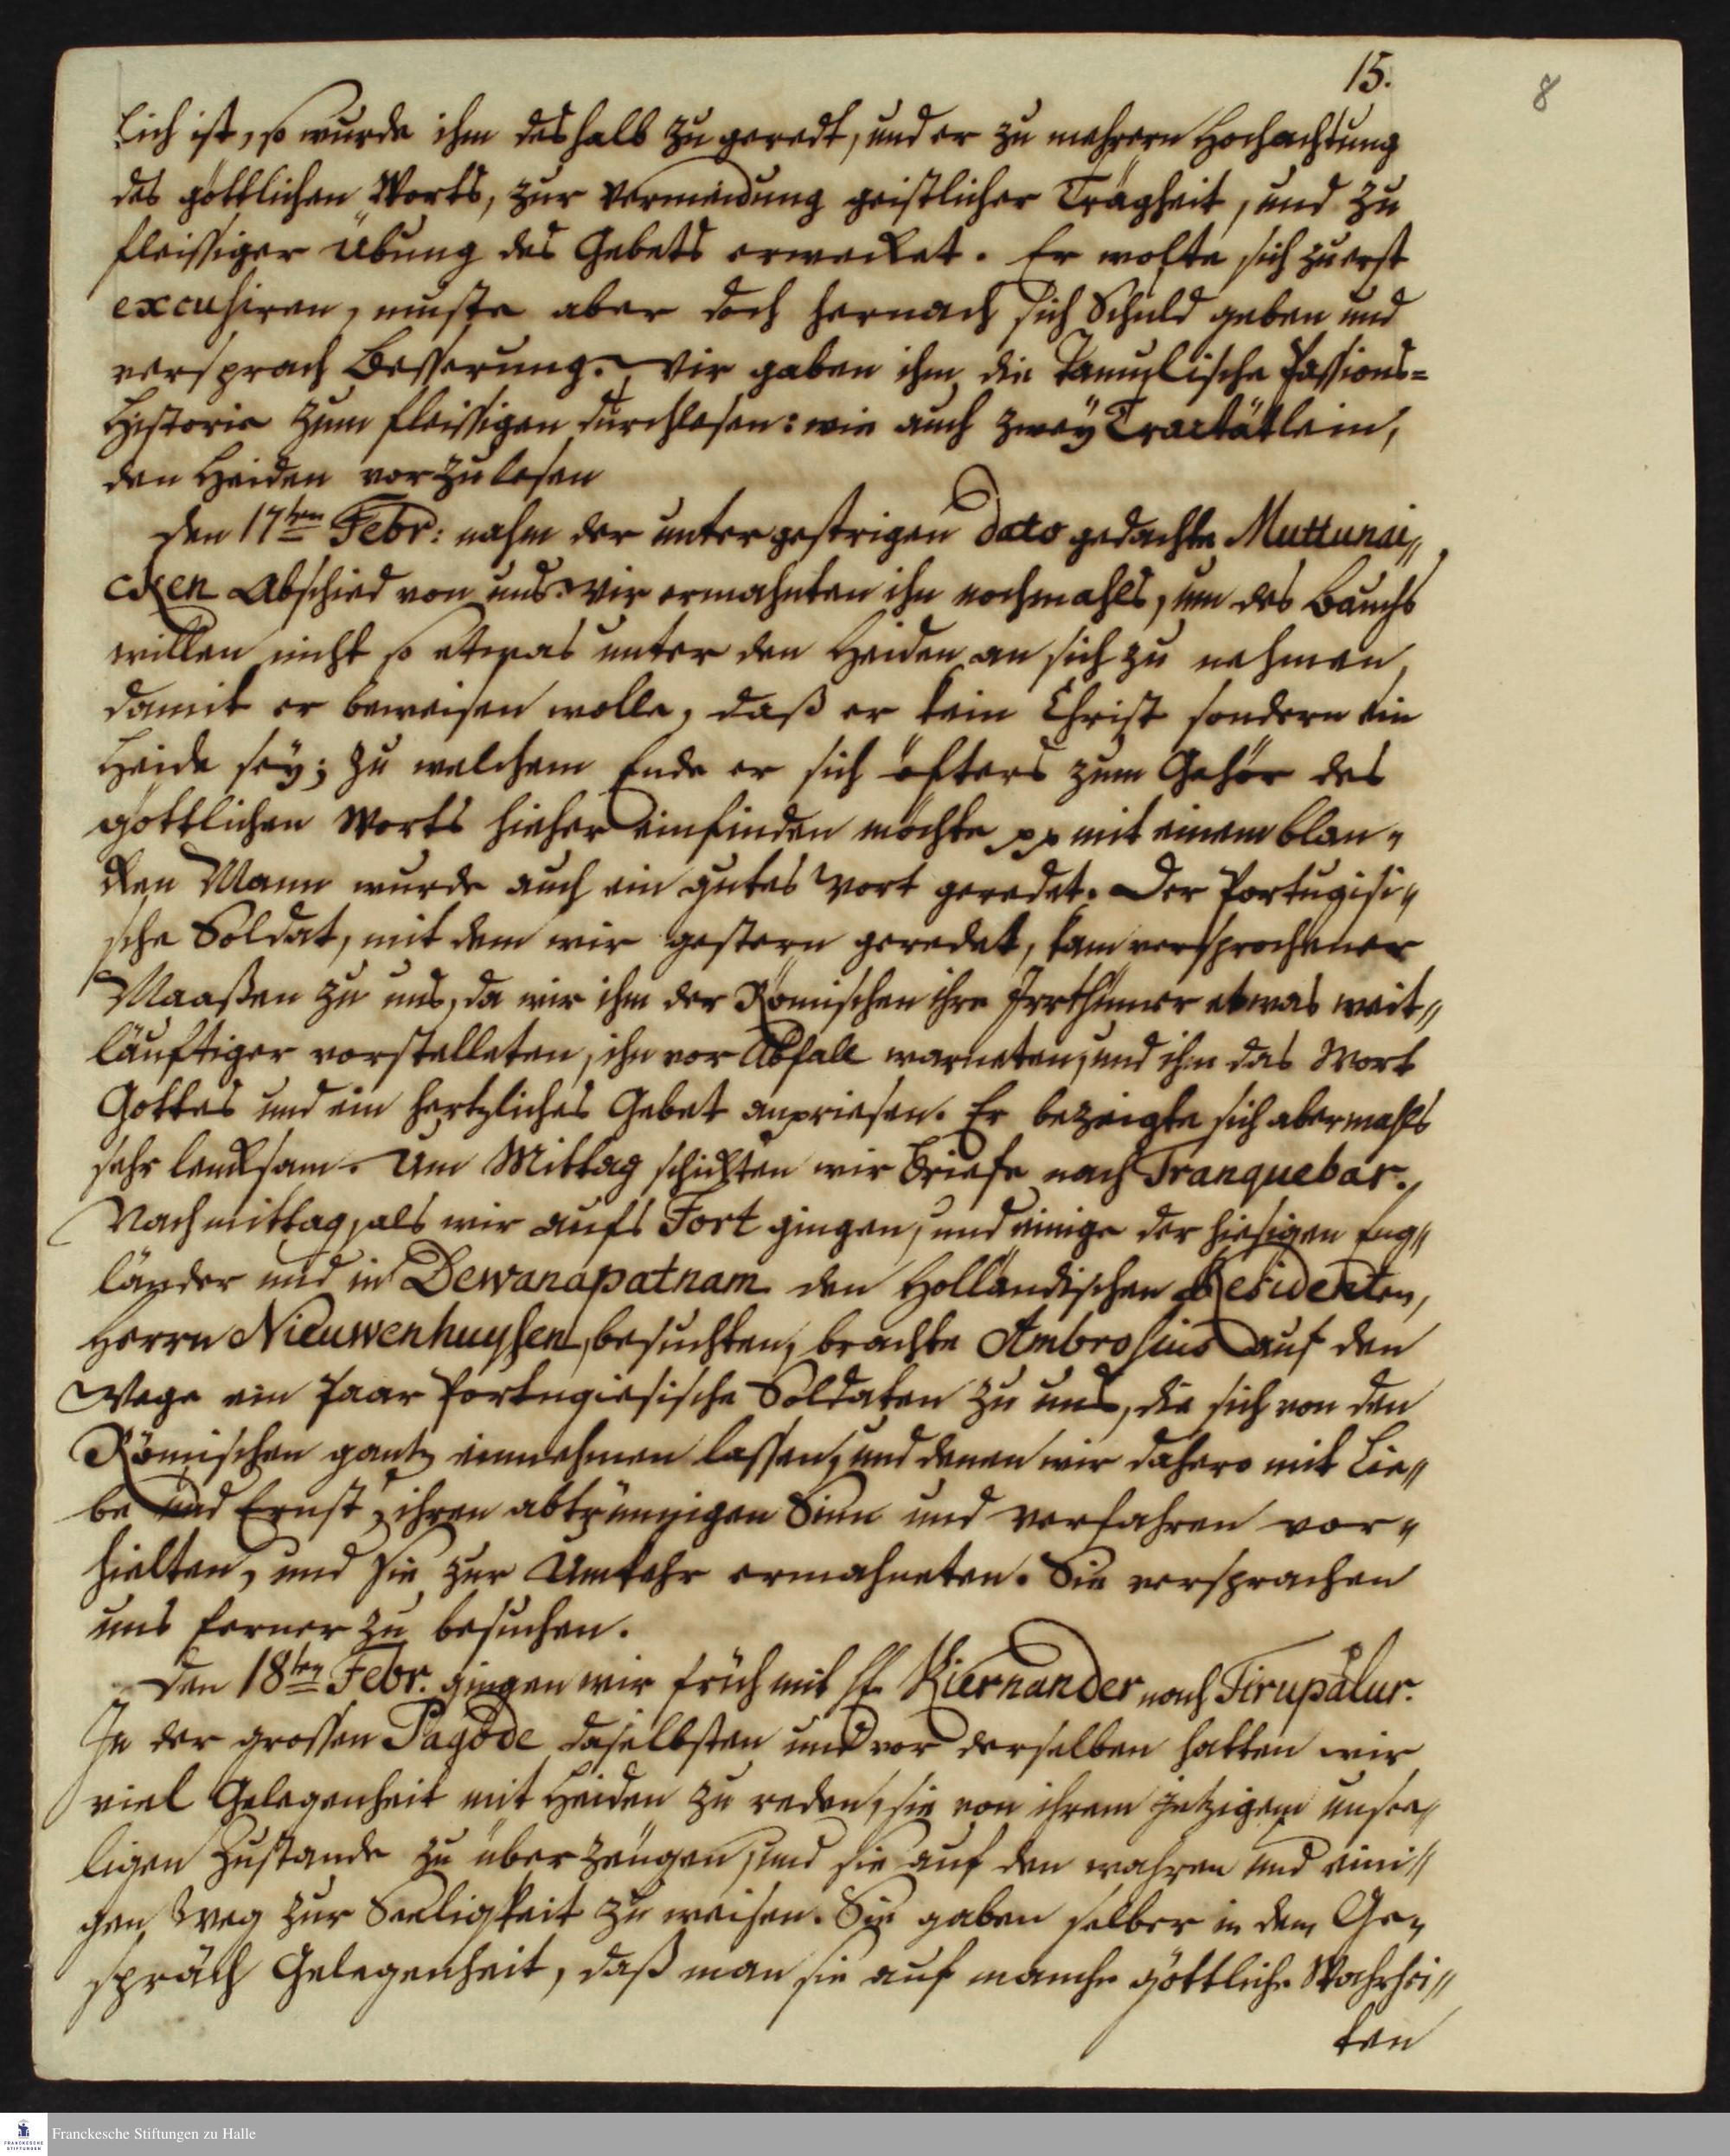 15.
8
lich ist, so wurde ihm deshalb zu geredt, und er zu mehrern Hochachtung
des göttlichen Worts, zur Vermeidung geistlicher Trägheit, und zu
fleissiger Übung des Gebets erwecket. Er wolte sich zuerst
excusiren, muste aber doch hernach sich Schuld geben und
versprach Besserung. Wir gaben ihm die Tamulische Passions=
Historie zum fleissigen durchlesen: wie auch zweÿ Tractätlein,
den Heiden vorzulesen
den 17ten Febr: nahm der unter gestrigen dato gedachte Muttunai„
cken Abschied von uns. Wir ermahnten ihn nochmahls, um des Bauchs
willen nicht so etwas unter den Heiden an sich zu nehmen,
damit er beweisen wolle, daß er kein Christ sondern ein
Heide seÿ; zu welchem Ende er sich öfters zum Gehör des
göttlichen Worts hieher einfinden möchte pp mit einem blan„
cken Mann wurde auch ein gutes Wort geredet. Der Portugisi„
sche Soldat, mit dem wir gestern geredet, kam versprochener
Maaßen zu uns, da wir ihm der Römischen ihre Irrthümer etwas weit„
läuftiger vorstelleten, ihn vor Abfall warneten, und ihm das Wort
Gottes und ein hertzliches Gebet anpriesen. Er bezeigte sich abermahls
sehr lencksam. Um Mittag schickten wir Briefe nach Tranquebar.
Nachmittag, als wir aufs Fort gingen, und einige der hiesigen Eng„
länder und in Dewanapatnam den Holländischen Residenten,
Herrn Nieuwenhuysen, besuchten, brachte Ambrosius auf den
Wege ein Paar Portugiesische Soldaten zu uns, die sich von den
Römischen gantz einnehmen lassen, und denen wir dahero mit Lie„
be und Ernst, ihren abtrünnigen Sinn und Verfahren vor„
hielten, und sie zur Umkehr ermahneten. Sie versprachen
uns ferner zu besuchen.
den 18ten Febr. gingen wir früh mit H. Kiernander nach Tirupálur.
In der grossen Pagode daselbsten und vor derselben hatten wir
viel Gelegenheit mit Heiden zu reden, sie von ihrem jetzigem unsee„
ligen Zustande zu überzeugen, und sie auf den wahren und eini„
gen Weg zur Seeligkeit zu weisen. Sie gaben selber in dem Ge„
spräch Gelegenheit, daß man sie auf manche göttliche Wahrhei„
ten
FRANCKESCHE STIFTUNGEN
Franckesche Stiftungen zu Halle